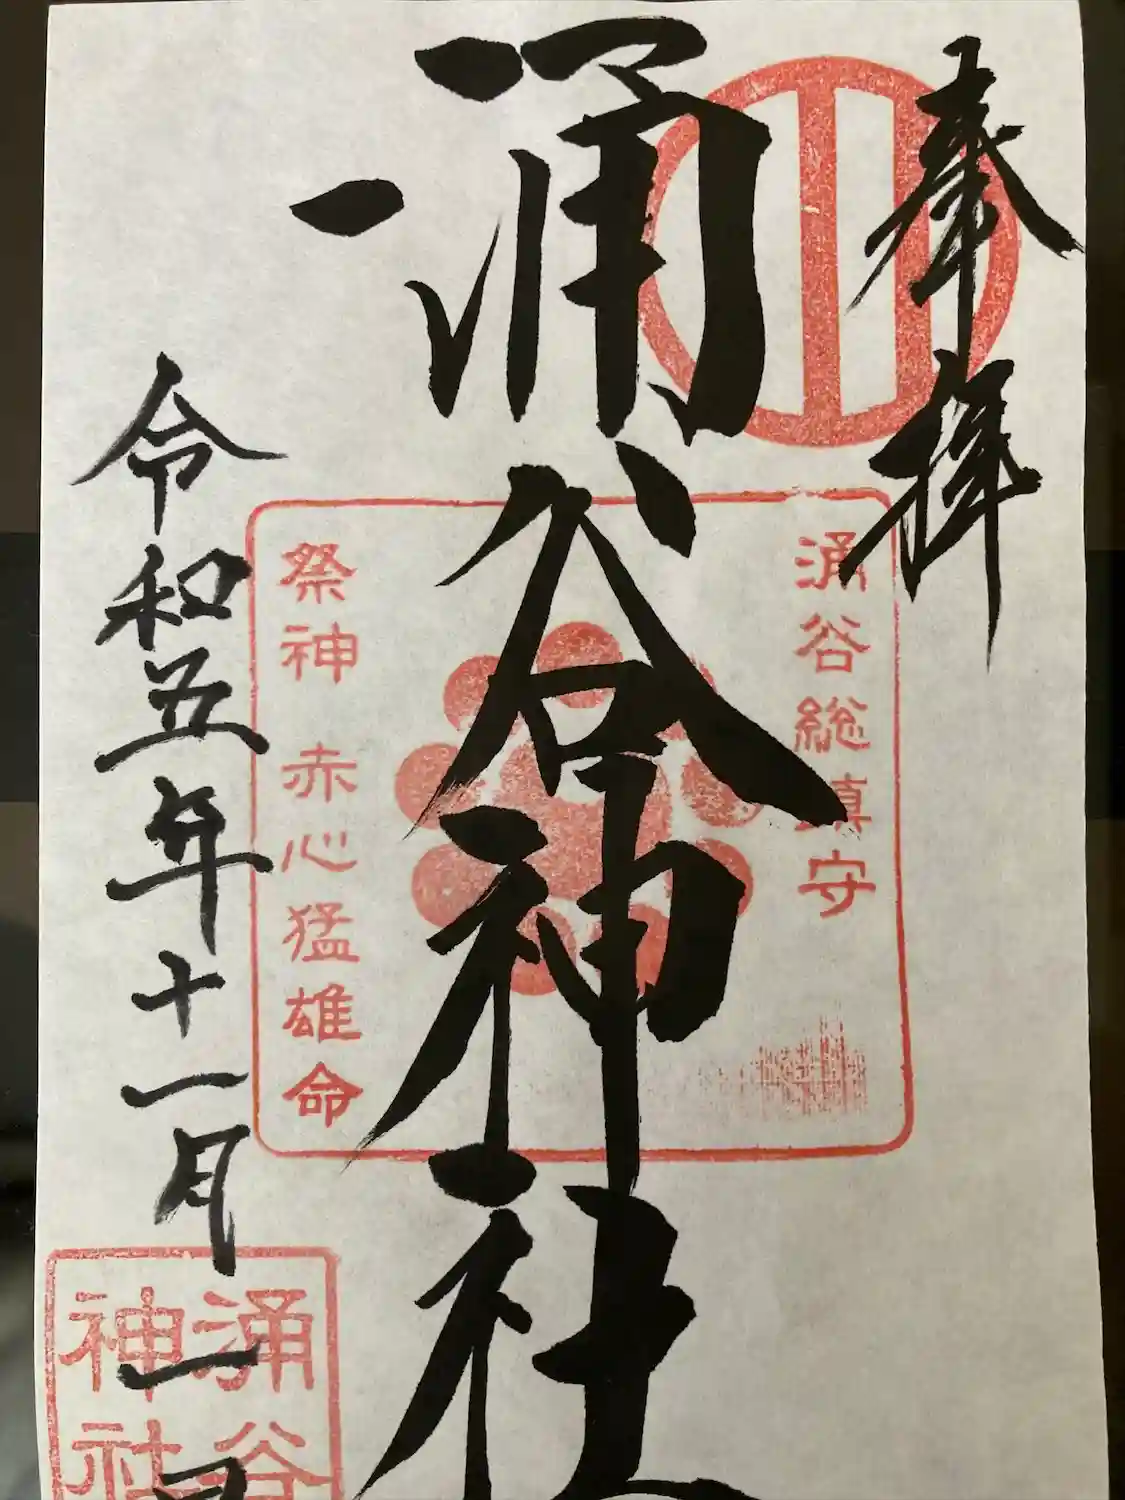 奉拝
涌谷総鎮守
涌谷神社
祭神 赤心猛雄命
令和五年十一月一日
涌谷
神社